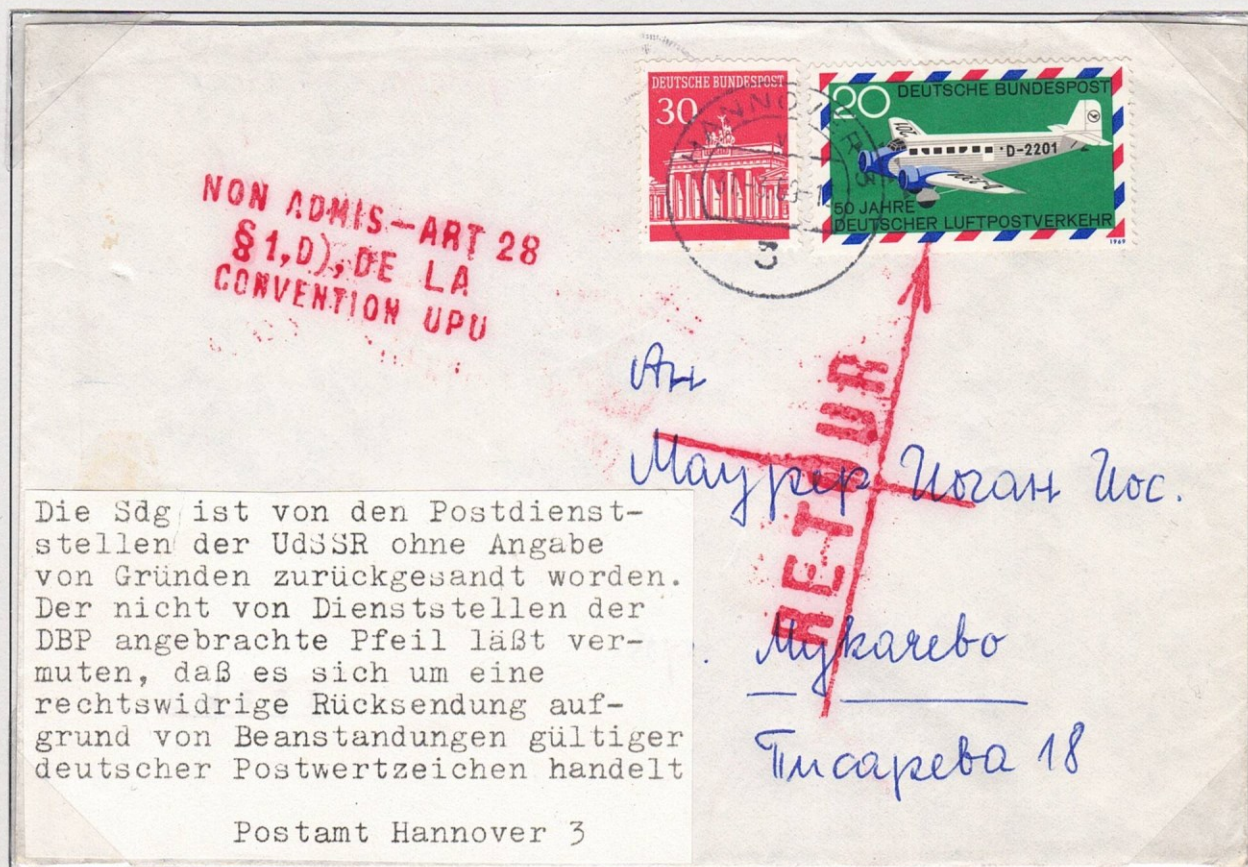 DEUTSCHE BUNDESPOST
30
20 DEUTSCHE BUNDESPOST
D-2201
50 JAHRE
DEUTSCHER LUFTPOSTVERKEHR
1969
HANNOVER 3
3
NON ADMIS—ART 28
§ 1, D), DE LA
CONVENTION UPU
RETOUR
Ан
Маурер Йоган Йос.
Мукачево
Писарева 18
Die Sdg ist von den Postdienst-
stellen der UdSSR ohne Angabe
von Gründen zurückgesandt worden.
Der nicht von Dienststellen der
DBP angebrachte Pfeil läßt ver-
muten, daß es sich um eine
rechtswidrige Rücksendung auf-
grund von Beanstandungen gültiger
deutscher Postwertzeichen handelt
Postamt Hannover 3